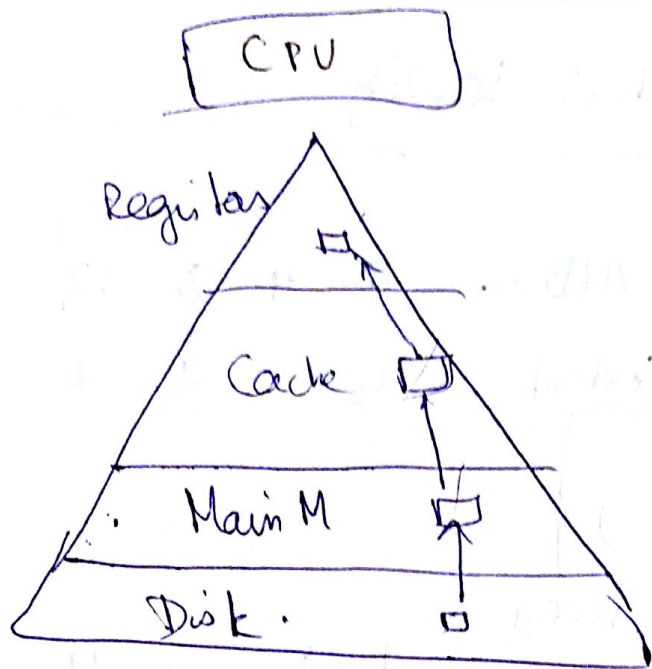 CPU
Registers
Cache
Main M
Disk.